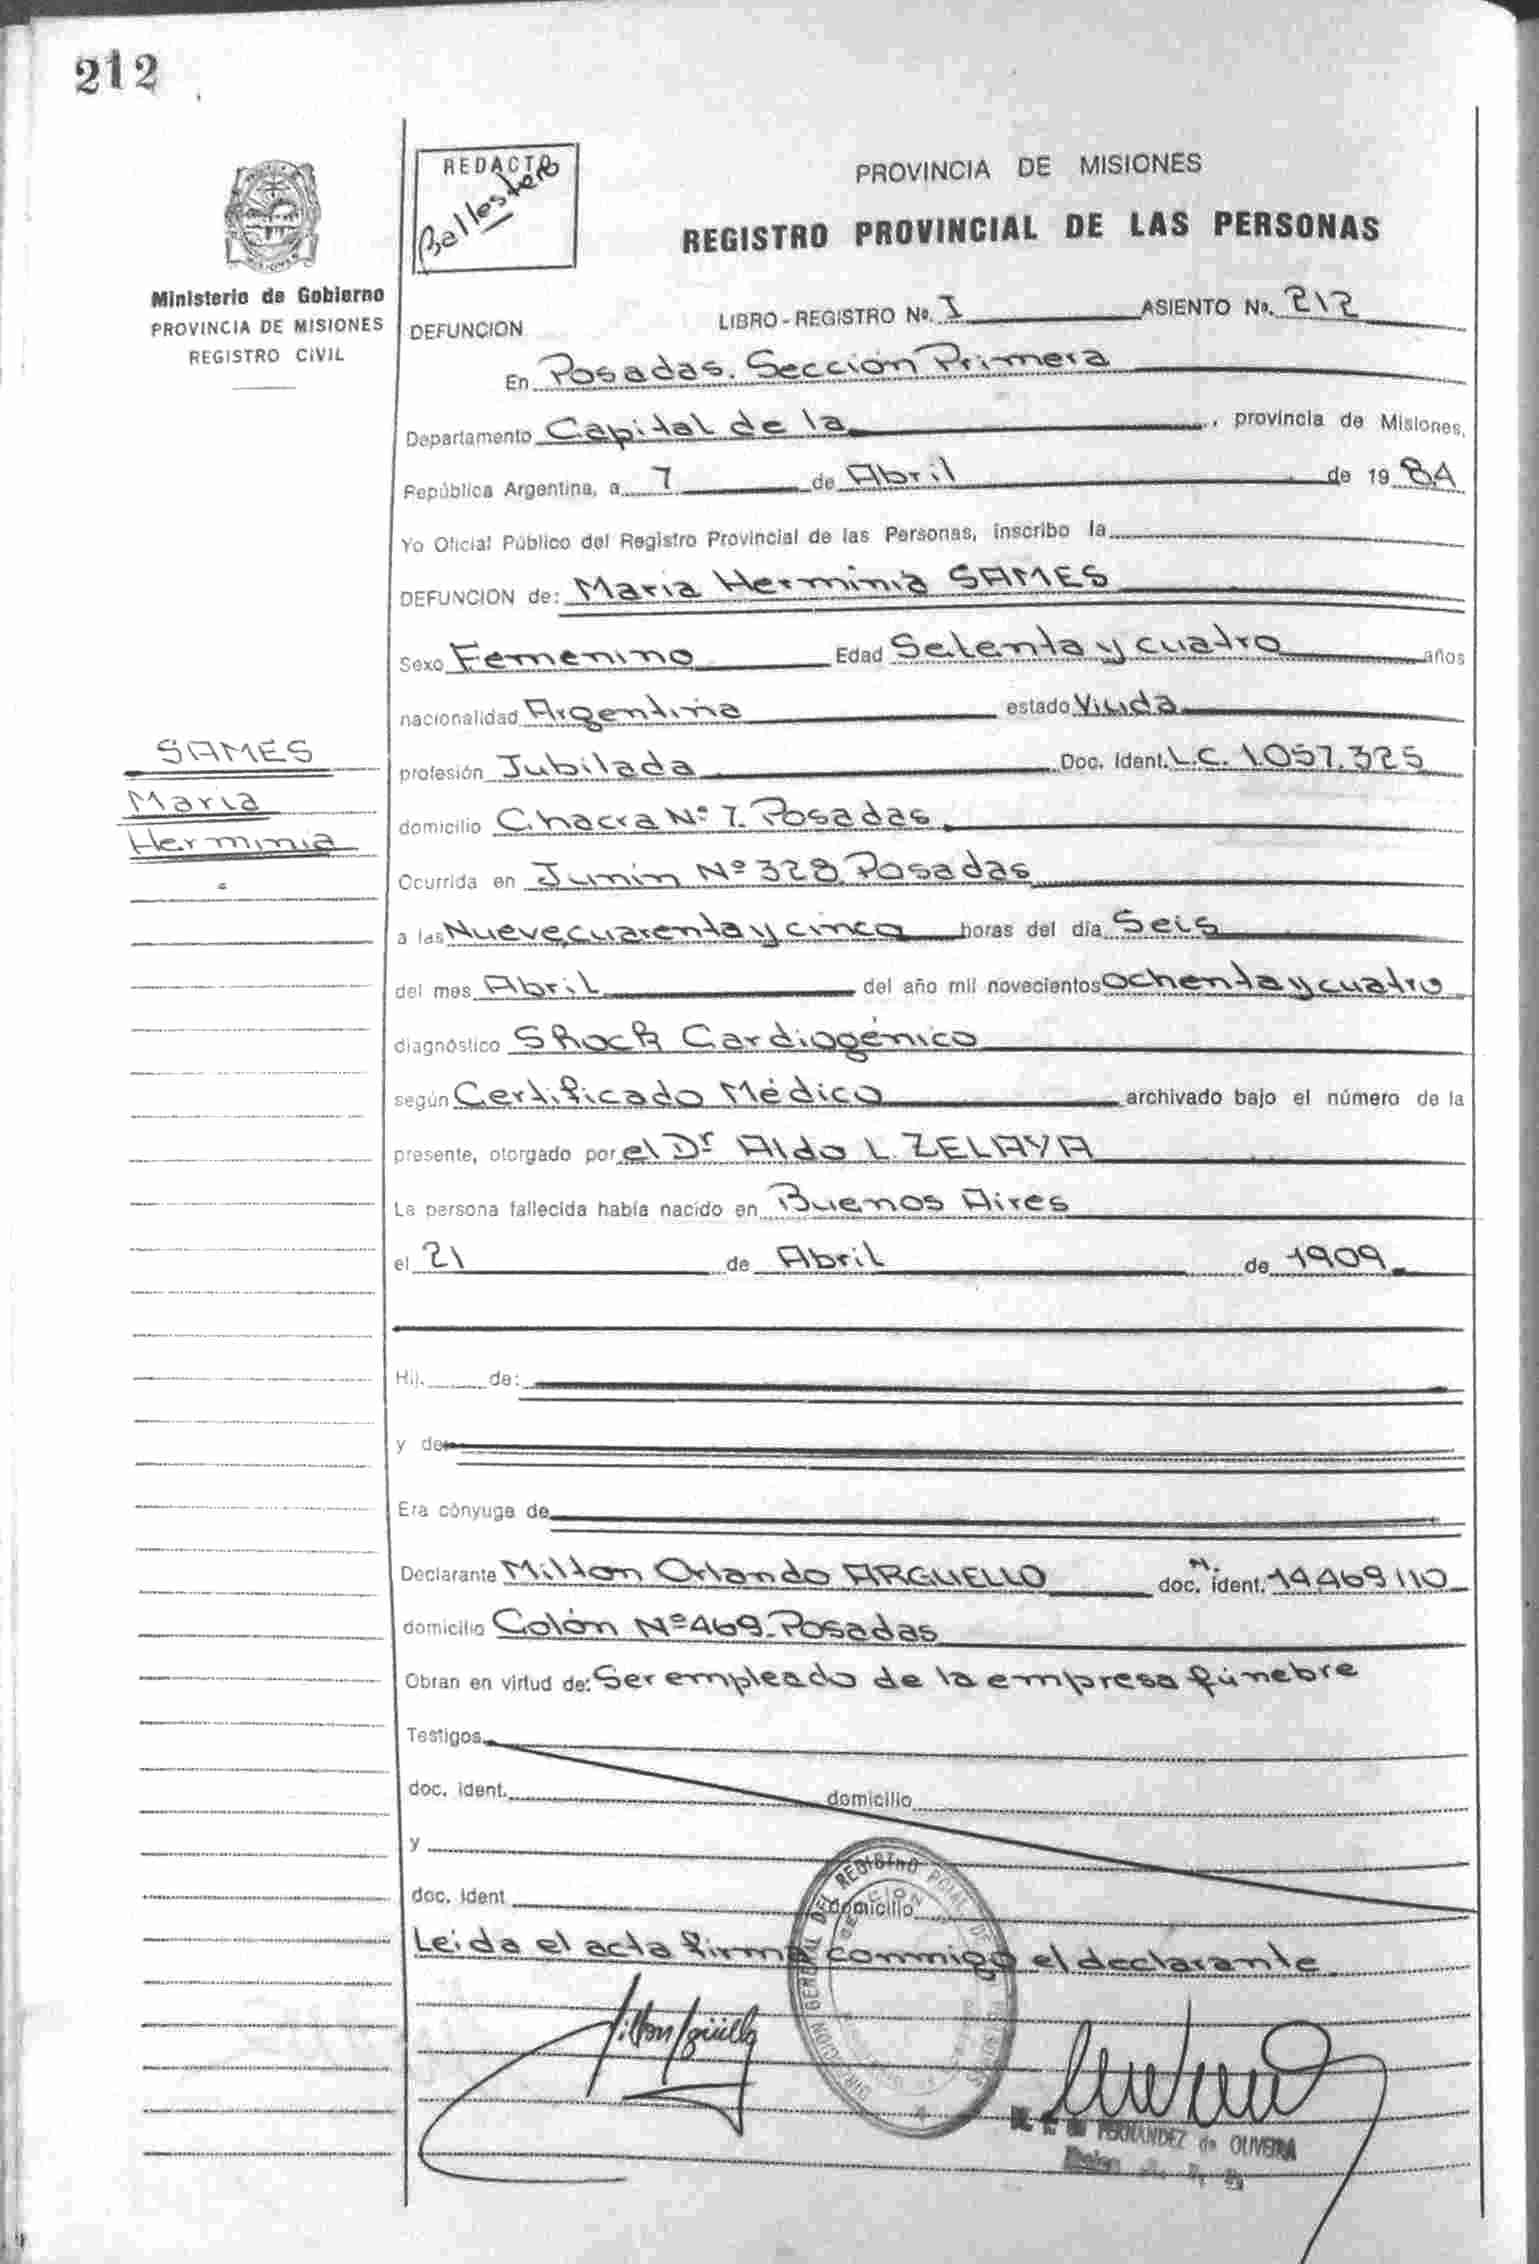 212
REDACTO
Ballestero
PROVINCIA DE MISIONES
REGISTRO PROVINCIAL DE LAS PERSONAS
MISIONES
Ministerio de Gobierno
PROVINCIA DE MISIONES
REGISTRO CIVIL
DEFUNCION LIBRO - REGISTRO Nº. I ASIENTO Nº. 212
En Posadas. Sección Primera
Departamento Capital de la, provincia de Misiones,
República Argentina, a 7 de Abril de 1984
Yo Oficial Público del Registro Provincial de las Personas, inscribo la
DEFUNCION de: Maria Herminia SAMES
Sexo Femenino Edad Setenta y cuatro años
nacionalidad Argentina estado Viuda
SAMES
Maria
Herminia
profesión Jubilada Doc. Ident. L.C. 1.057.325
domicilio Chacra Nº 7. Posadas
Ocurrida en Junin Nº 328. Posadas
a las Nueve, cuarenta y cinco horas del día Seis
del mes Abril del año mil novecientos ochenta y cuatro
diagnóstico Shock Cardiogénico
según Certificado Médico archivado bajo el número de la
presente, otorgado por el Dr Aldo L. ZELAYA
La persona fallecida había nacido en Buenos Aires
el 21 de Abril de 1909
Hij. de:
y de
Era cónyuge de
Declarante Milton Orlando ARGUELLO doc. M. ident. 14.469.110
domicilio Colón Nº 469. Posadas
Obran en virtud de: Ser empleado de la empresa fúnebre
Testigos
doc. ident. domicilio
y
doc. ident. domicilio
Leida el acta firma conmigo el declarante
DIRECCION GENERAL DEL REGISTRO PCIAL. DE
FERNANDEZ de OLIVEIRA